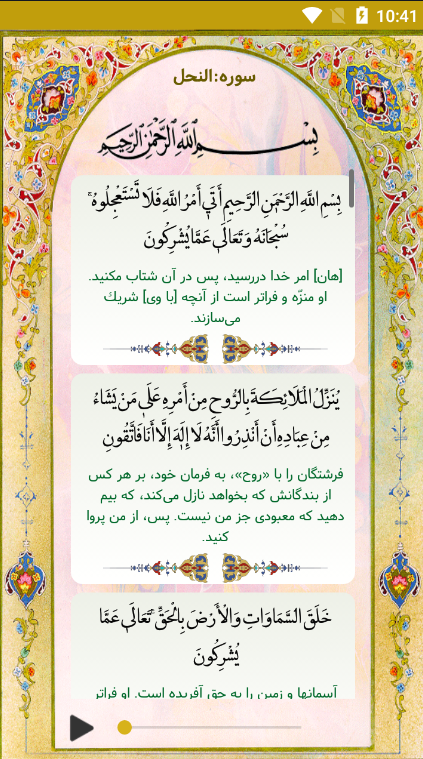 10:41
سوره:النحل
بِسْمِ اللَّهِ الرَّحْمَٰنِ الرَّحِيمِ
بِسْمِ اللَّهِ الرَّحْمَٰنِ الرَّحِيمِ أَتَىٰ أَمْرُ اللَّهِ فَلَا تَسْتَعْجِلُوهُ ۚ
سُبْحَانَهُ وَتَعَالَىٰ عَمَّا يُشْرِكُونَ
[هان] امر خدا دررسید، پس در آن شتاب مکنید.
او منزّه و فراتر است از آنچه [با وی] شریك
می‌سازند.
يُنَزِّلُ الْمَلَائِكَةَ بِالرُّوحِ مِنْ أَمْرِهِ عَلَىٰ مَنْ يَشَاءُ
مِنْ عِبَادِهِ أَنْ أَنْذِرُوا أَنَّهُ لَا إِلَٰهَ إِلَّا أَنَا فَاتَّقُونِ
فرشتگان را با «روح»، به فرمان خود، بر هر کس
از بندگانش که بخواهد نازل می‌کند، که بیم
دهید که معبودی جز من نیست. پس، از من پروا
کنید.
خَلَقَ السَّمَاوَاتِ وَالْأَرْضَ بِالْحَقِّ ۚ تَعَالَىٰ عَمَّا
يُشْرِكُونَ
آسمانها و زمین را به حق آفریده است. او فراتر